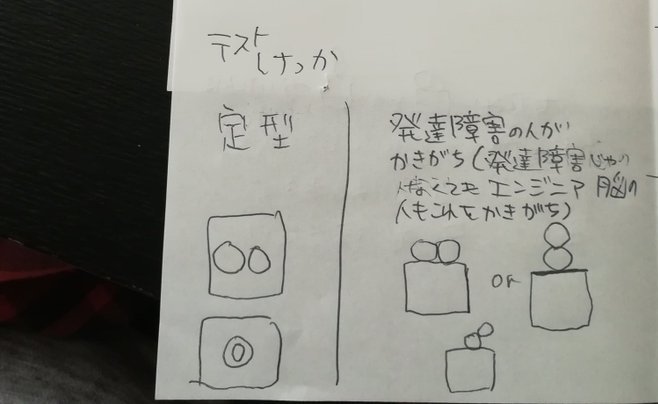 テスト
けっか
定型
発達障害の人が
かきがち(発達障害じゃ
なくても エンジニア 脳の
人もこれをかきがち)
or